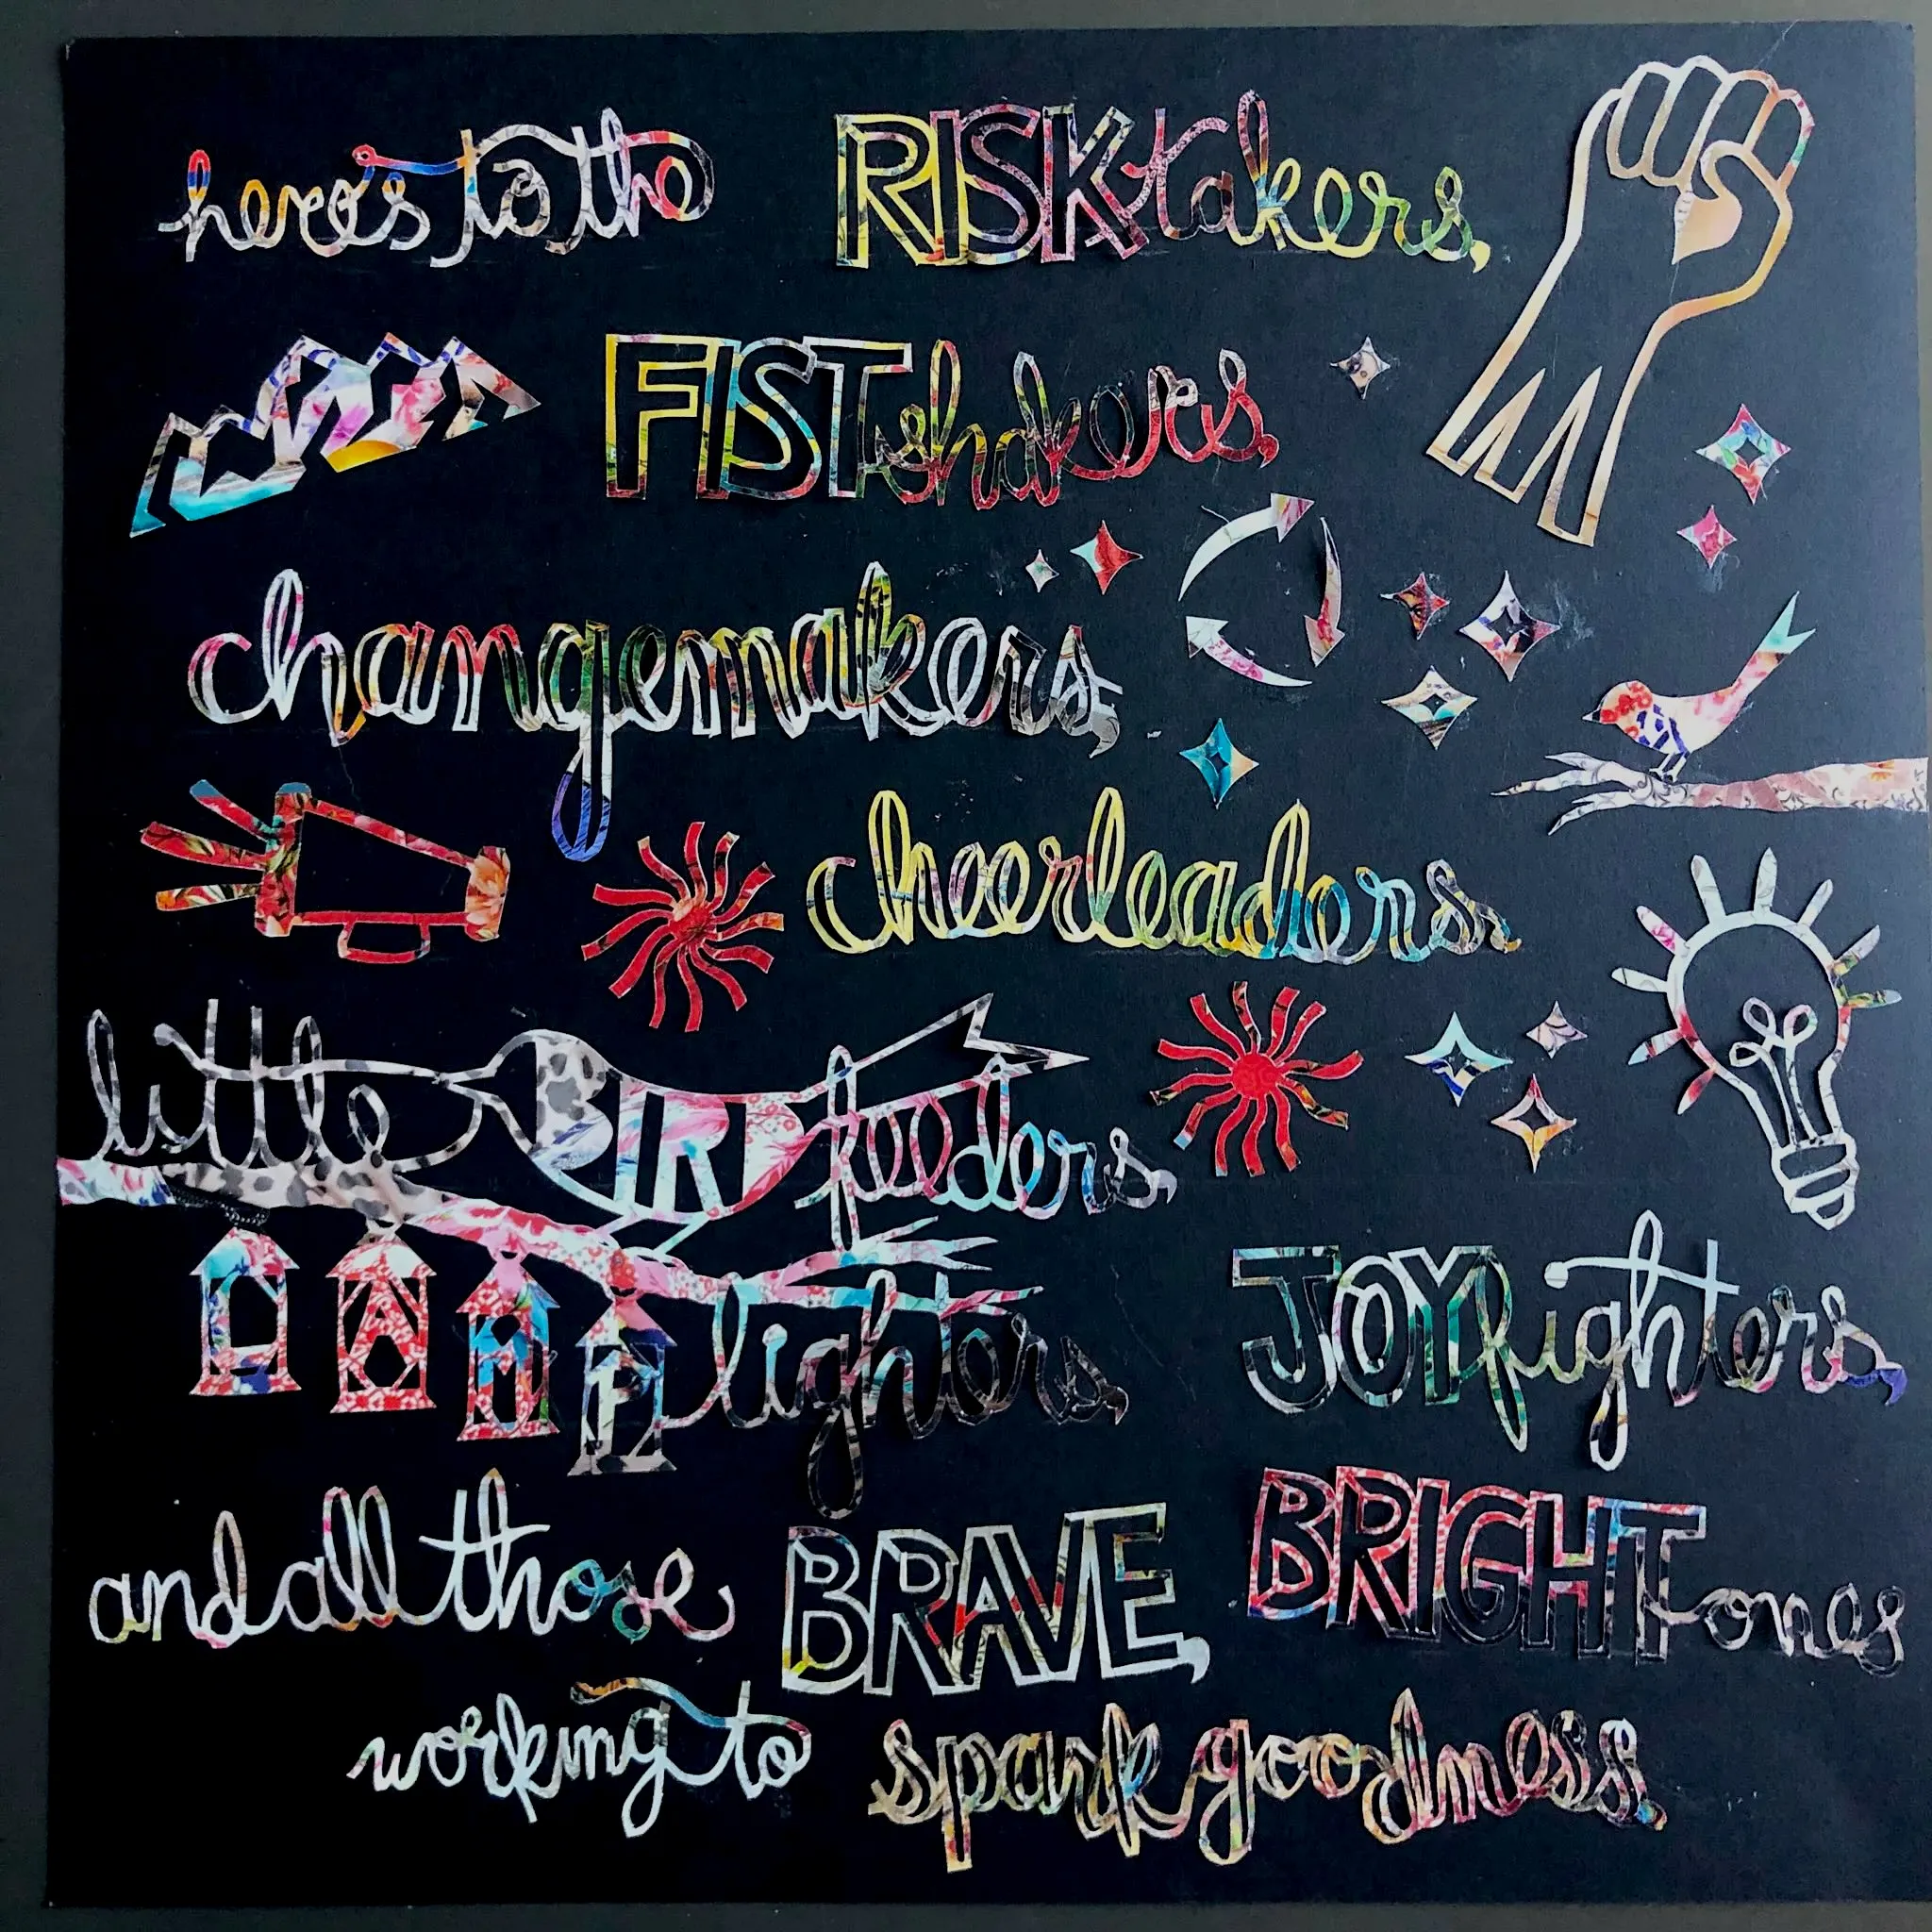 here's to the RISKtakers,
FISTshakers,
changemakers,
cheerleaders,
little BIRD feeders,
LAMPlighters, JOYfighters,
and all those BRAVE, BRIGHT ones
working to spark goodness.